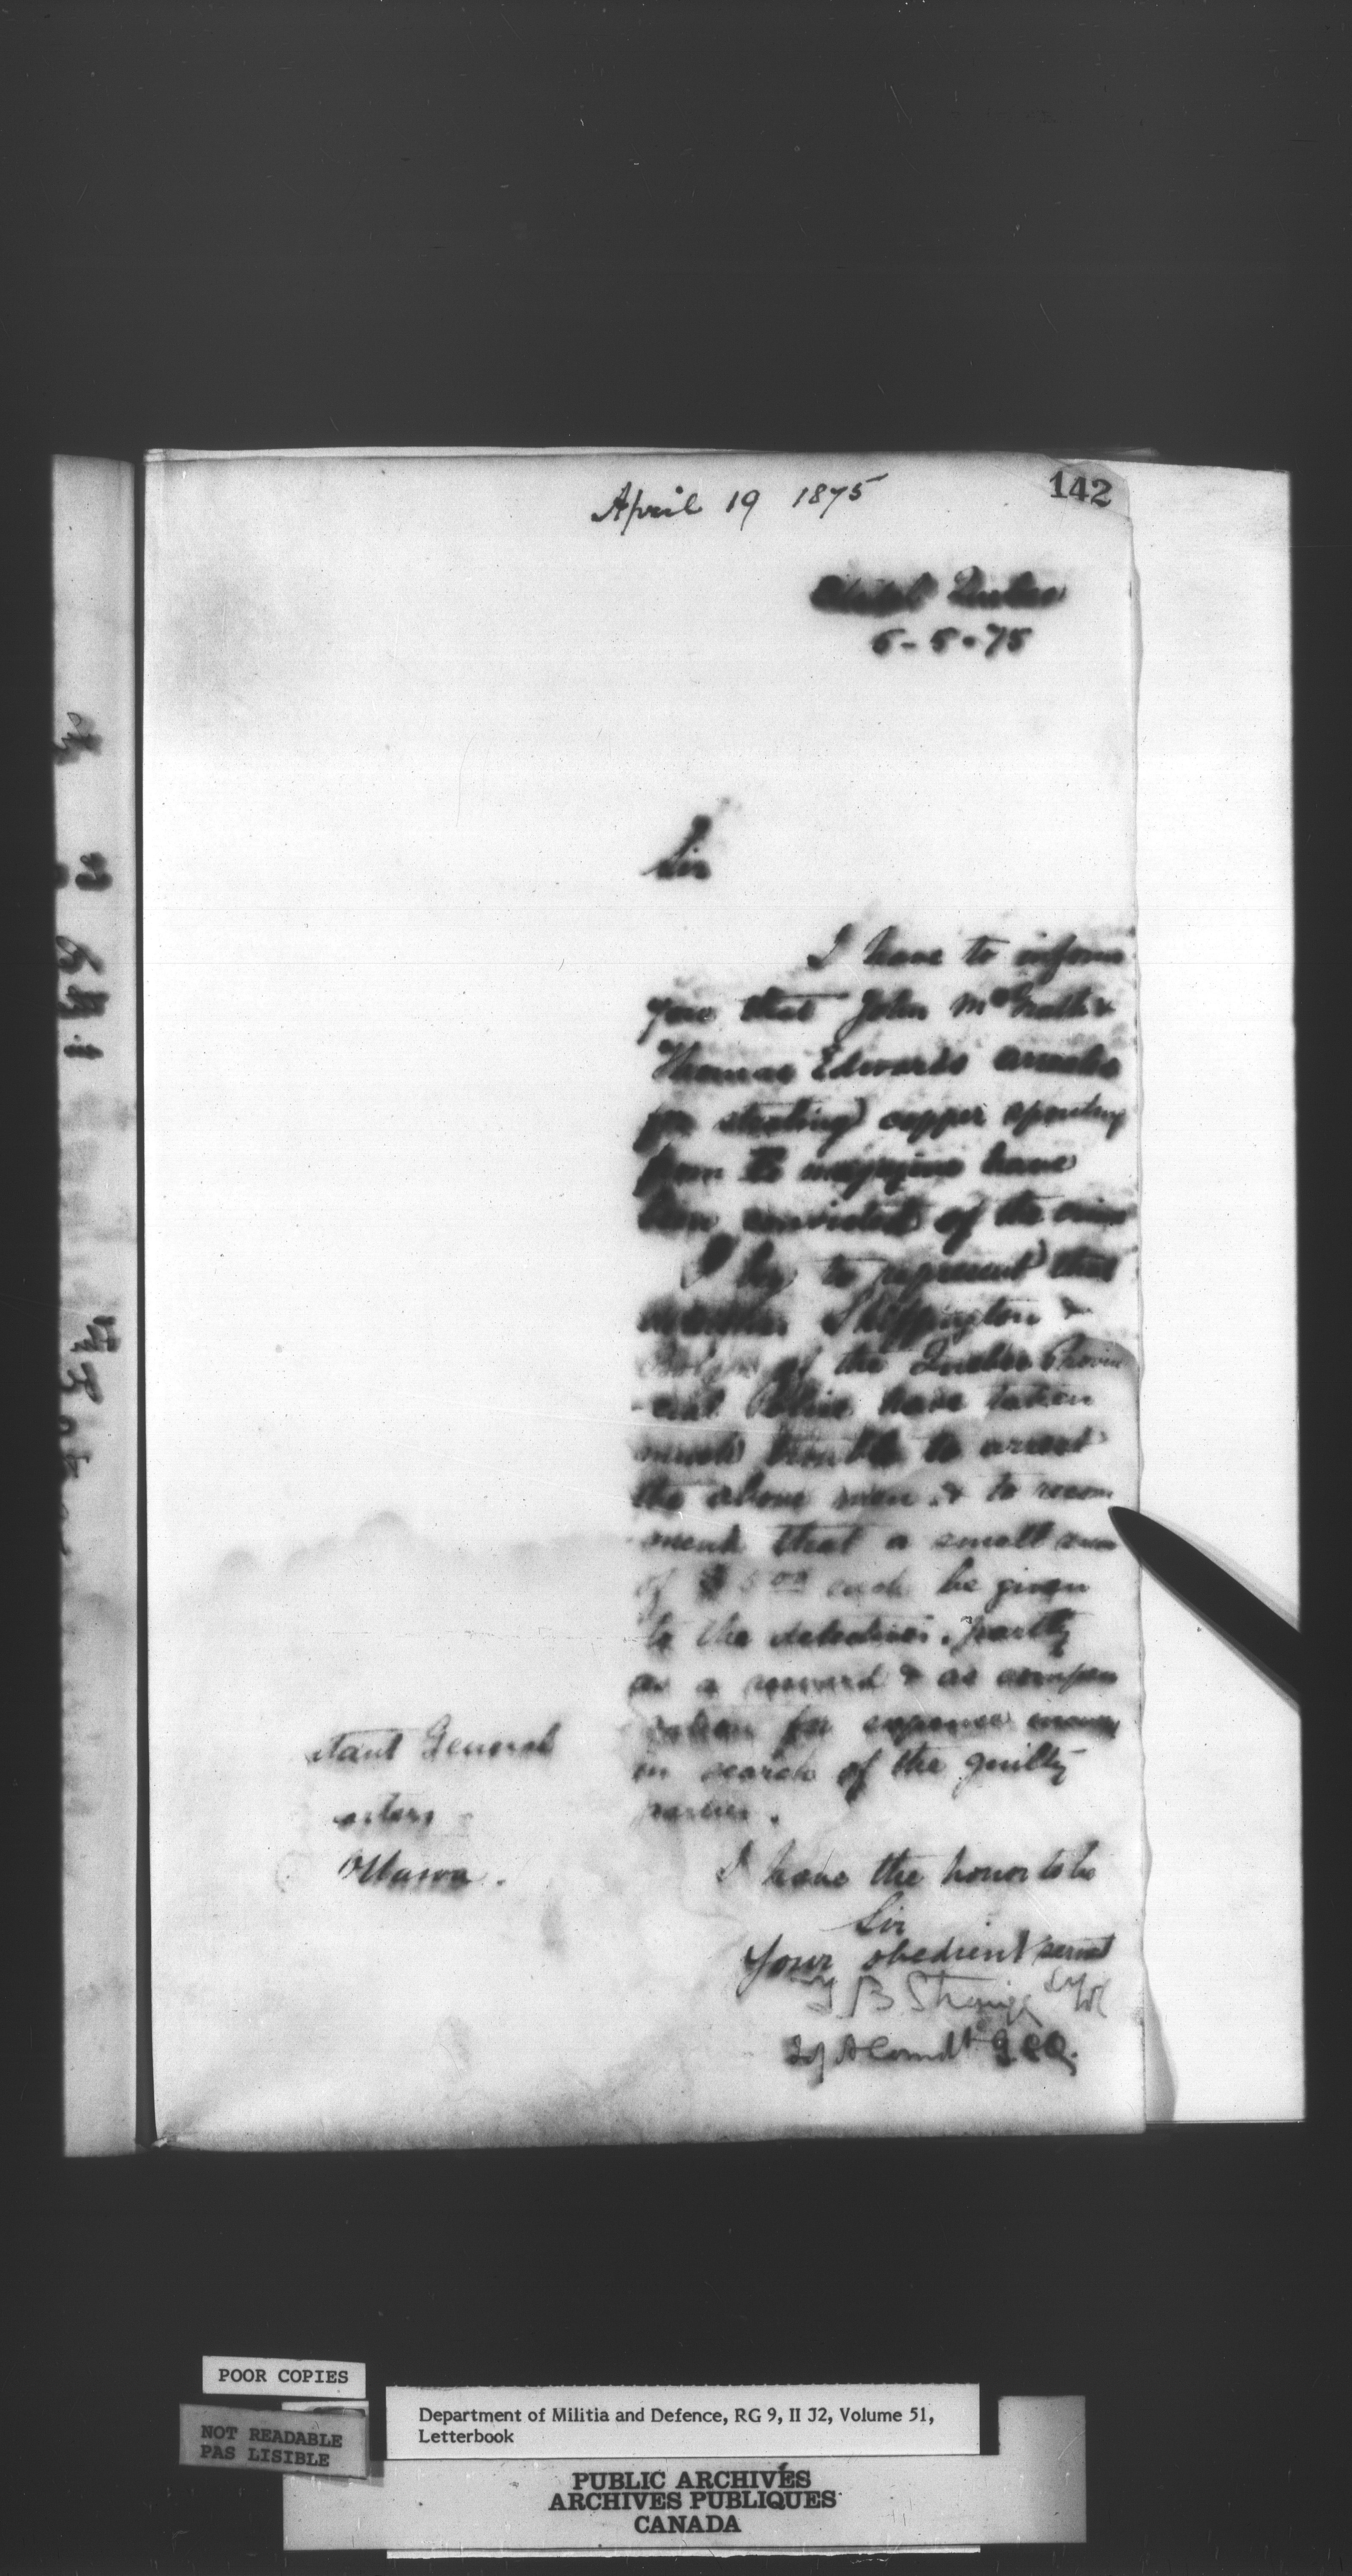 April 19 1875
142
Citadel Quebec
6-5-75
Sir
I have to inform
you that John McGrath &
Thomas Edwards
for stealing copper
from the magazine have
been convicted of the crime
I beg to represent that
Skeffington &
of the Quebec Provin
-cial Police have taken
much trouble to arrest
the above men & to recom
mend that a small sum
of $ each be given
to the detectives, partly
as a reward & as compen
sation for expenses
in search of the guilty
parties.
I have the honor to be
Sir
Your obedient servant
T B Strange
Comdt
itant General
arters
Ottawa.
POOR COPIES
NOT READABLE
PAS LISIBLE
Department of Militia and Defence, RG 9, II J2, Volume 51,
Letterbook
PUBLIC ARCHIVES
ARCHIVES PUBLIQUES
CANADA